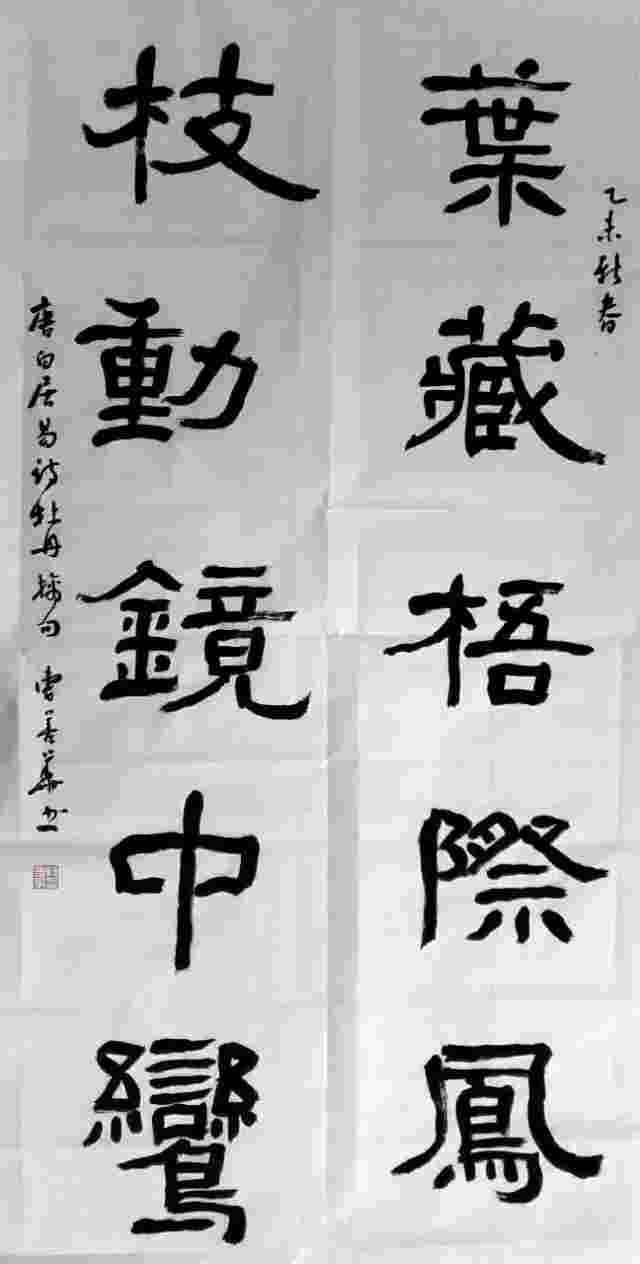 乙未新春
葉藏梧際鳳
枝動鏡中鸞
唐白居易诗牡丹摘句 曹善華书